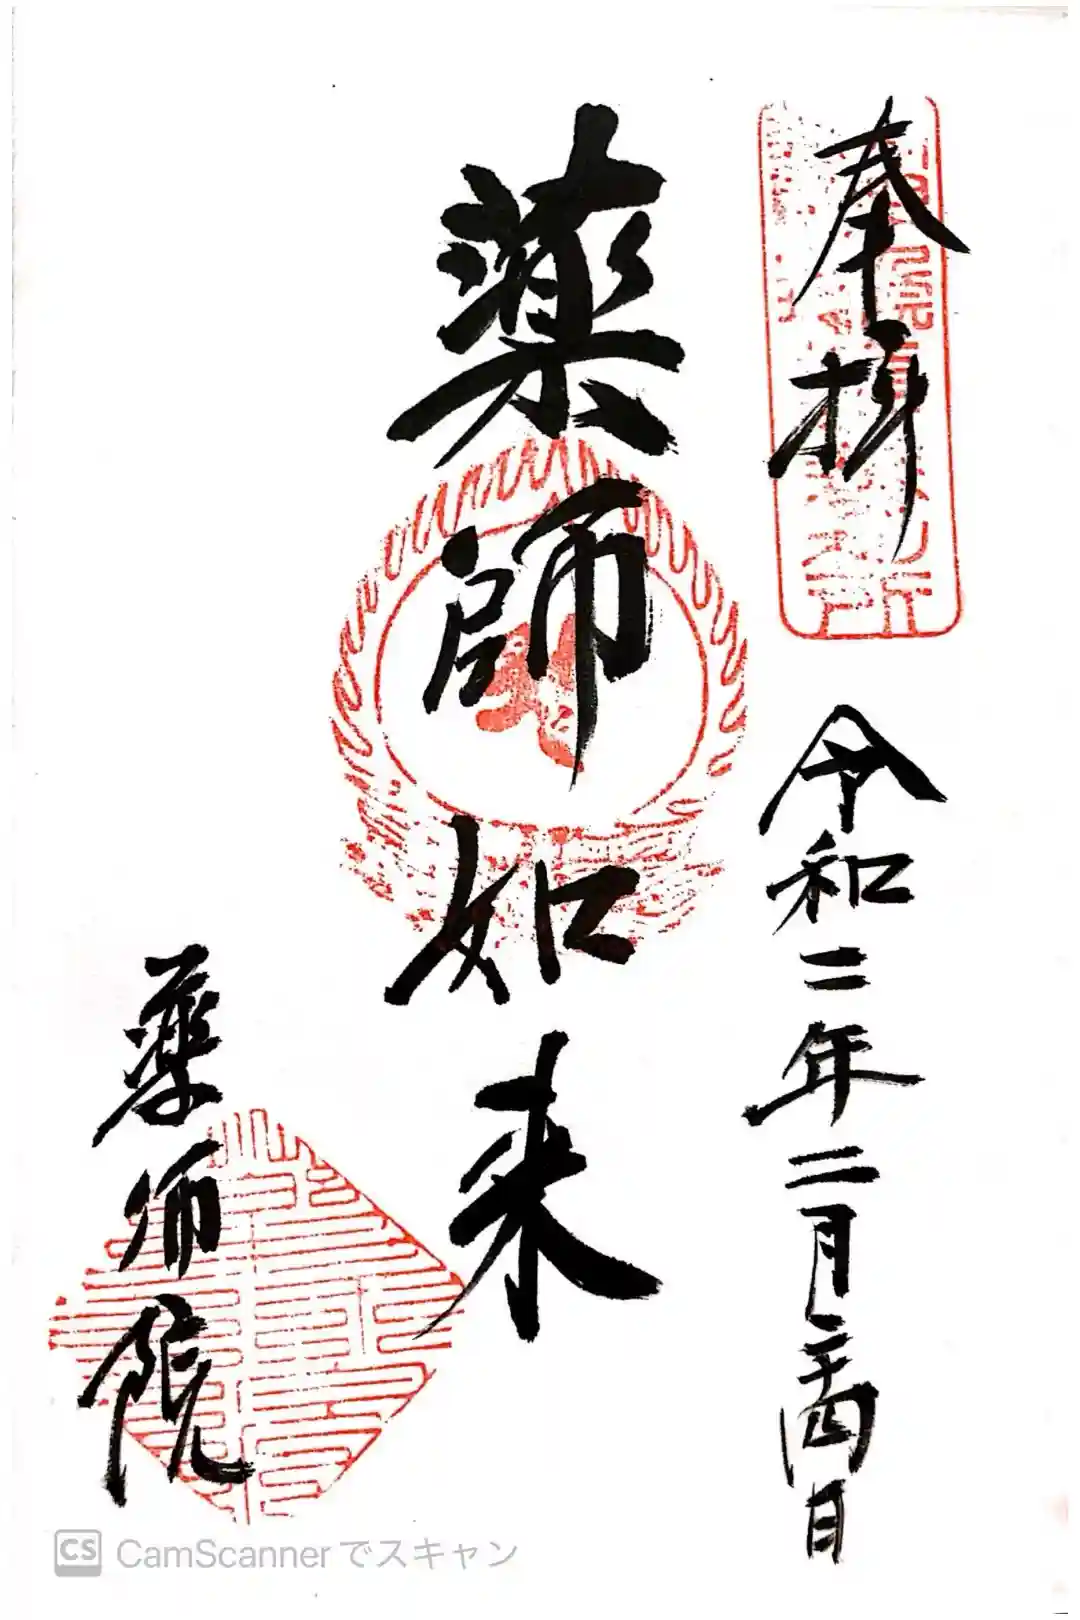 奉拝
令和二年二月二十四日
薬師如来
薬師院
CamScannerでスキャン